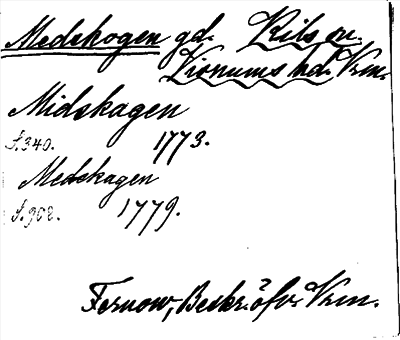 Medskogen gd. Kils sn.
Visnums hd. Vrm.
Midskagen
s. 340. 1773.
Medskagen
s. 908. 1779.
Fernow, Beskr. öfver Vrm.